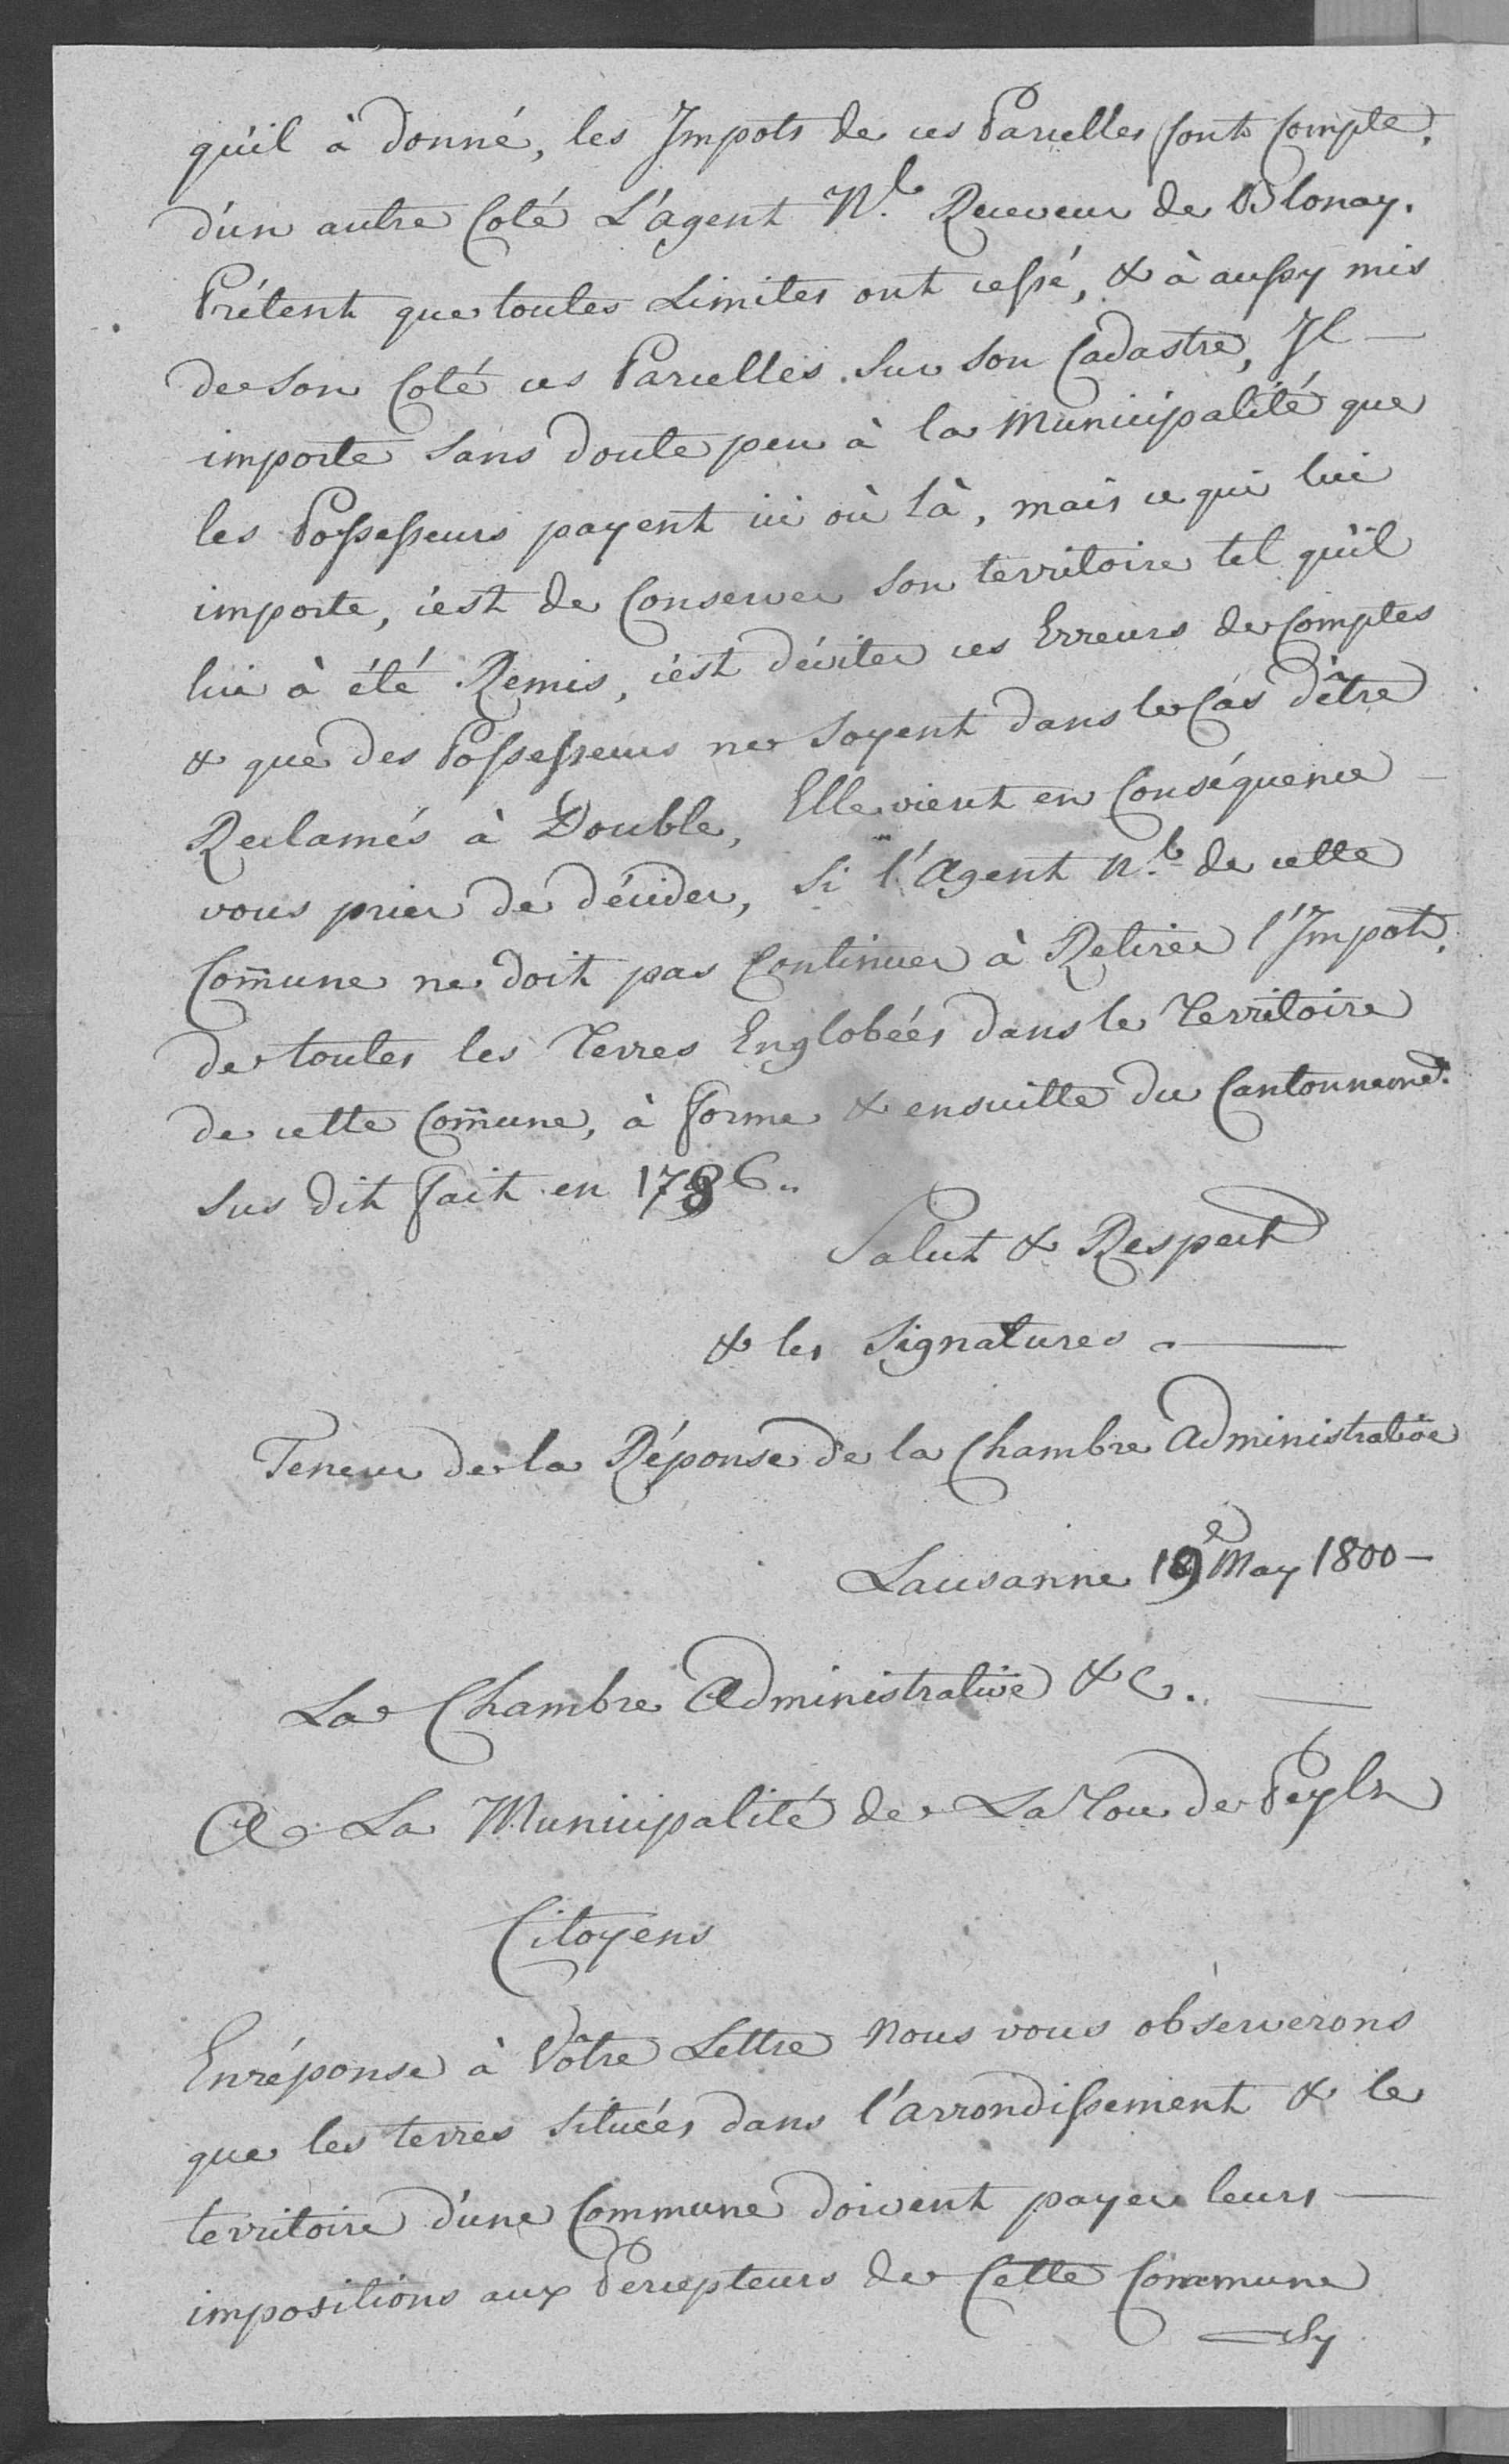 qu'il à donné, les Impots de ces Parcelles sont compte.
d'un autre Coté L'agent N.l Receveur de Blonay.
Prétent que toutes Limites ont cessé, & à aussy mis
de son Coté ces Parcelles. Sur son Cadastre, Il —
importe sans doute peu à la Municipalité que
les Possesseurs payent ici où là, mais ce qui lui
importe, c'est de Conserver son territoire tel qu'il
lui à été Remis, c'est d'éviter ces Erreurs de Comptes
& que des Possesseurs ne soyent dans le Cas d'être
Reclamés à Double, Elle vient en Conséquence —
vous prier de décider, Si l'Agent N.l de cette
Comune ne doit pas Continuer à Retirer l'Impot,
de toutes les Terres Englobées dans le Territoire
de cette Comune, à forme & ensuitte du Cantonnemt.
sus dit fait en 1786..
Salut & Respect
& les Signatures. —
Teneur de la Réponse de la Chambre Administrative
Lausanne 19e May 1800 —
La Chambre Administrative &c. —
A La Municipalité de La Tour de Peylz
Citoyens
En réponse à Vôtre Lettre Nous vous observerons
que les terres situées dans l'arrondissement & le
territoire d'une Commune doivent payer leurs —
impositions aux Percepteurs de Cette Commune
Sy